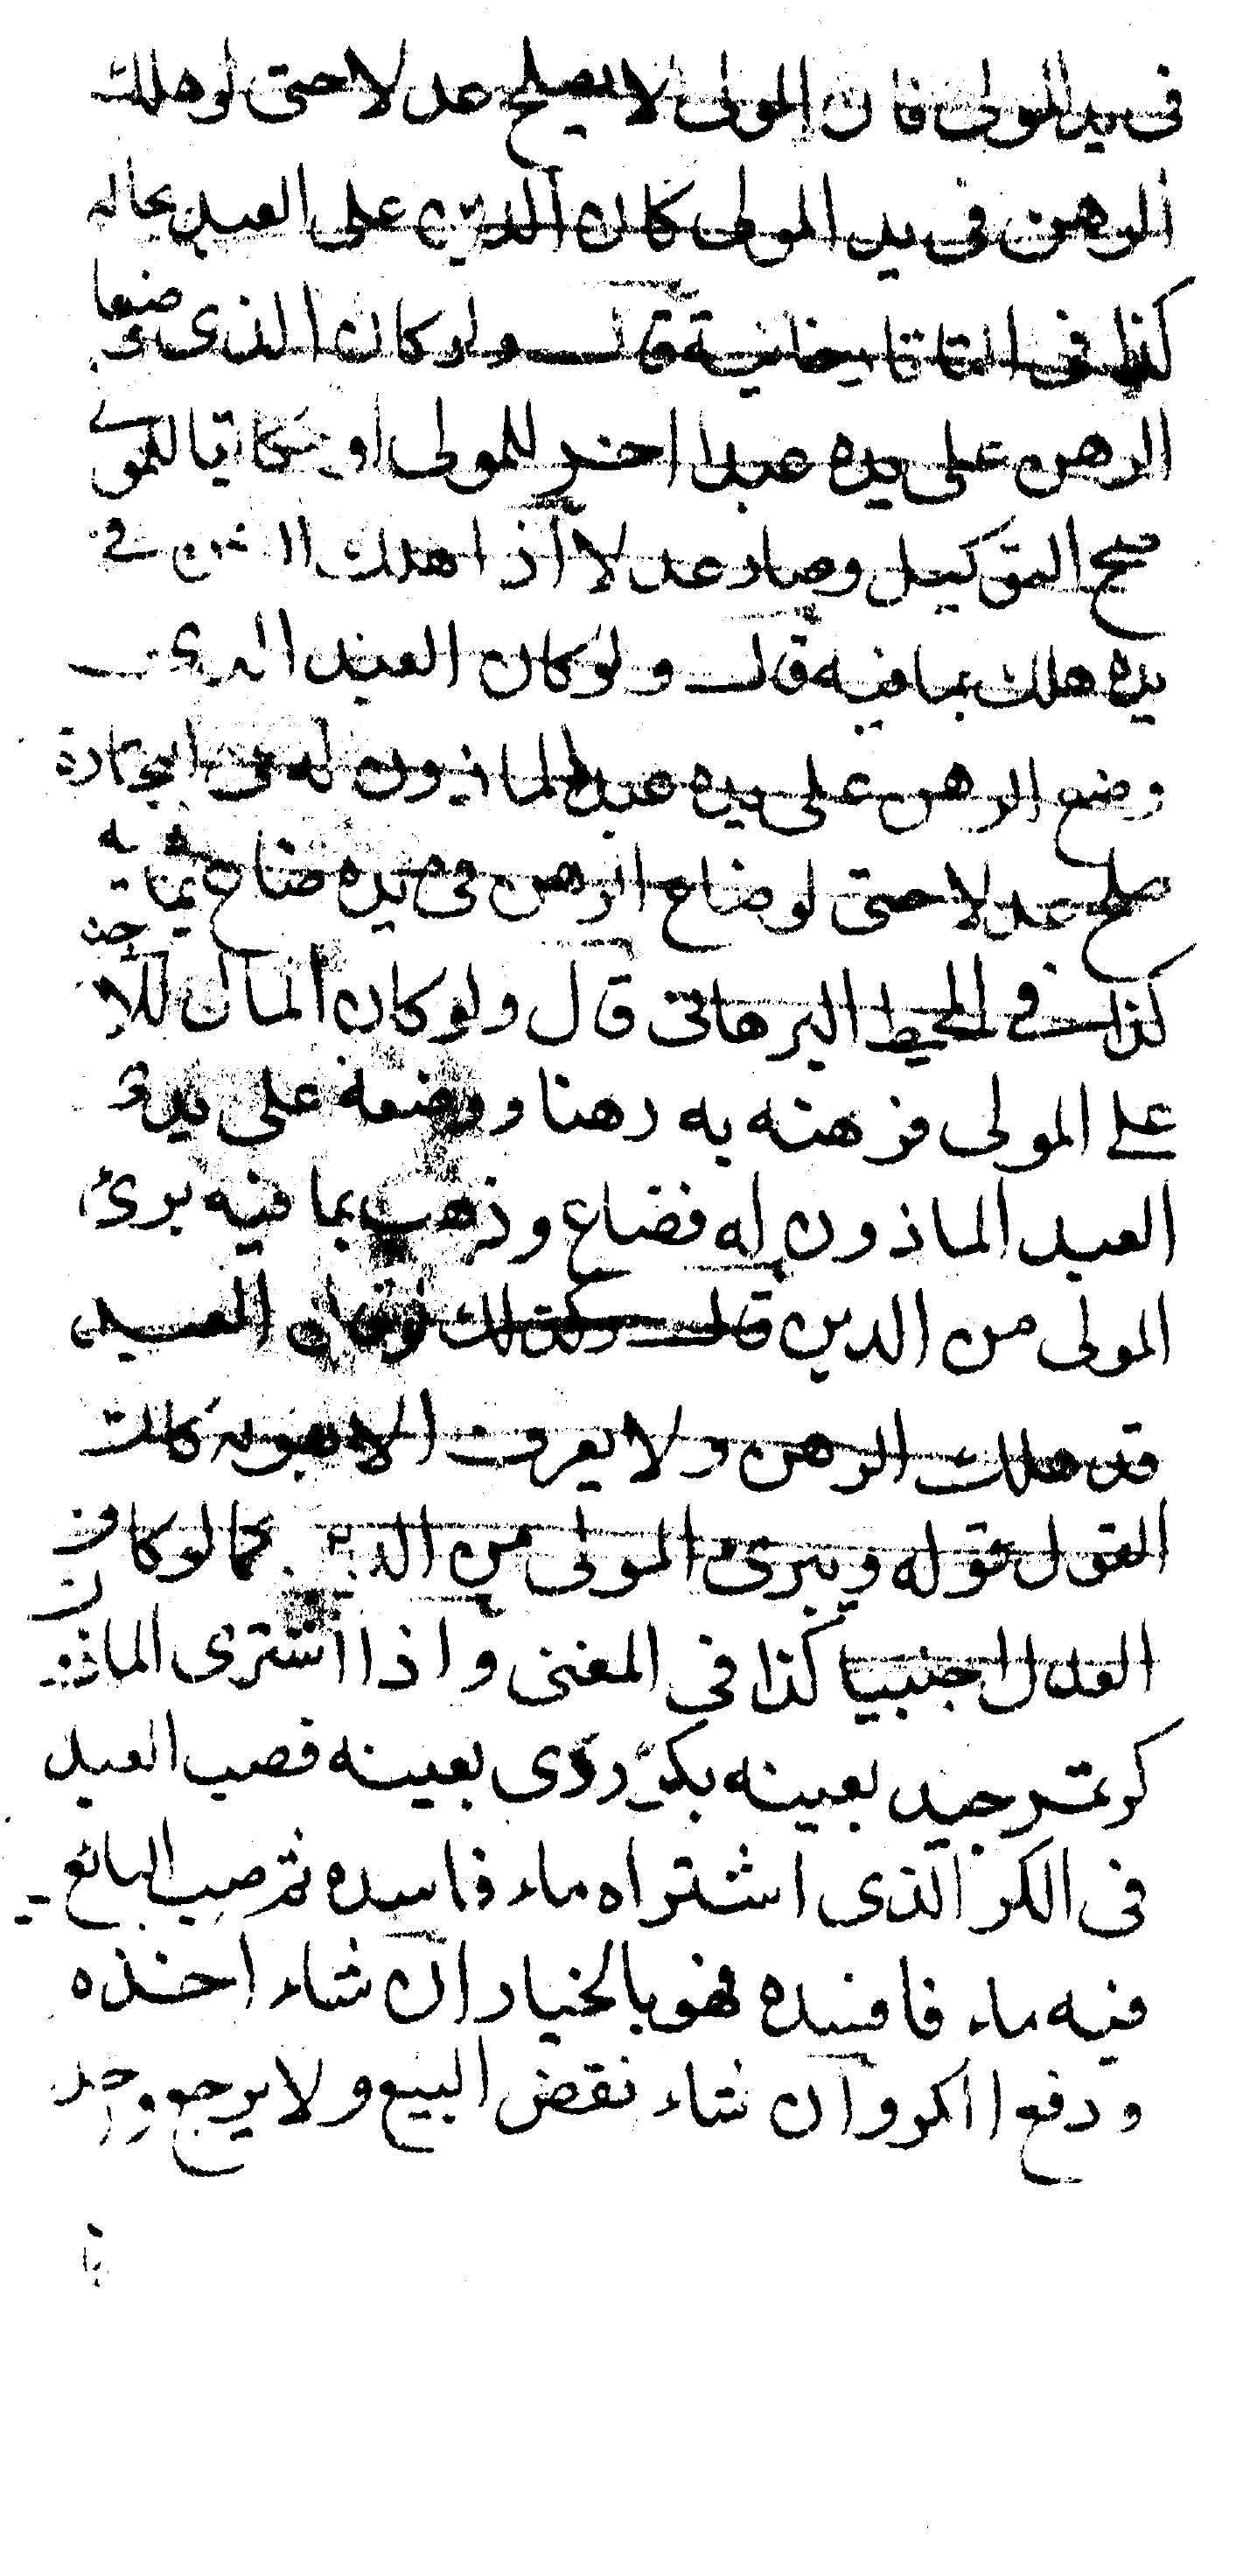 فى يد المولى فان المولى لا يصلح عدلا حتى لو هلك
الرهن فى يد المولى كان الدين على العبد بحاله
كذا فى التاتارخانية قال ولو كان الذى وضعا
الرهن على يده عبدا اخر للمولى او مكاتبا للمولى
صح التوكيل وصار عدلا اذا هلك الرهن فى
يده هلك بما فيه قال ولو كان العبد الذى
وضع الرهن على يده عبدا لماذون له فى التجارة
صلح عدلا حتى لو ضاع الرهن فى يده ضاع بما فيه
كذا فى المحيط البرهانى قال ولو كان المال للاجنبى
على المولى فرهنه به رهنا ووضعه على يدى
العبد الماذون له فضاع وذهب بما فيه برئ
المولى من الدين قال وكذلك لو قال العبد
قد هلك الرهن ولا يعرف الا بقوله كان
القول قوله ويبرئ المولى من الدين كما لو كان
العدل اجنبيا كذا فى المغنى واذا اشترى الماذون
كر تمر جيد بعينه بكر ردى بعينه فصب العبد
فى الكر الذى اشتراه ماء فافسده ثم صب البائع
فيه ماء فافسده فهو بالخيار ان شاء اخذه
ودفع الكر وان شاء نقض البيع ولا يرجع واحد